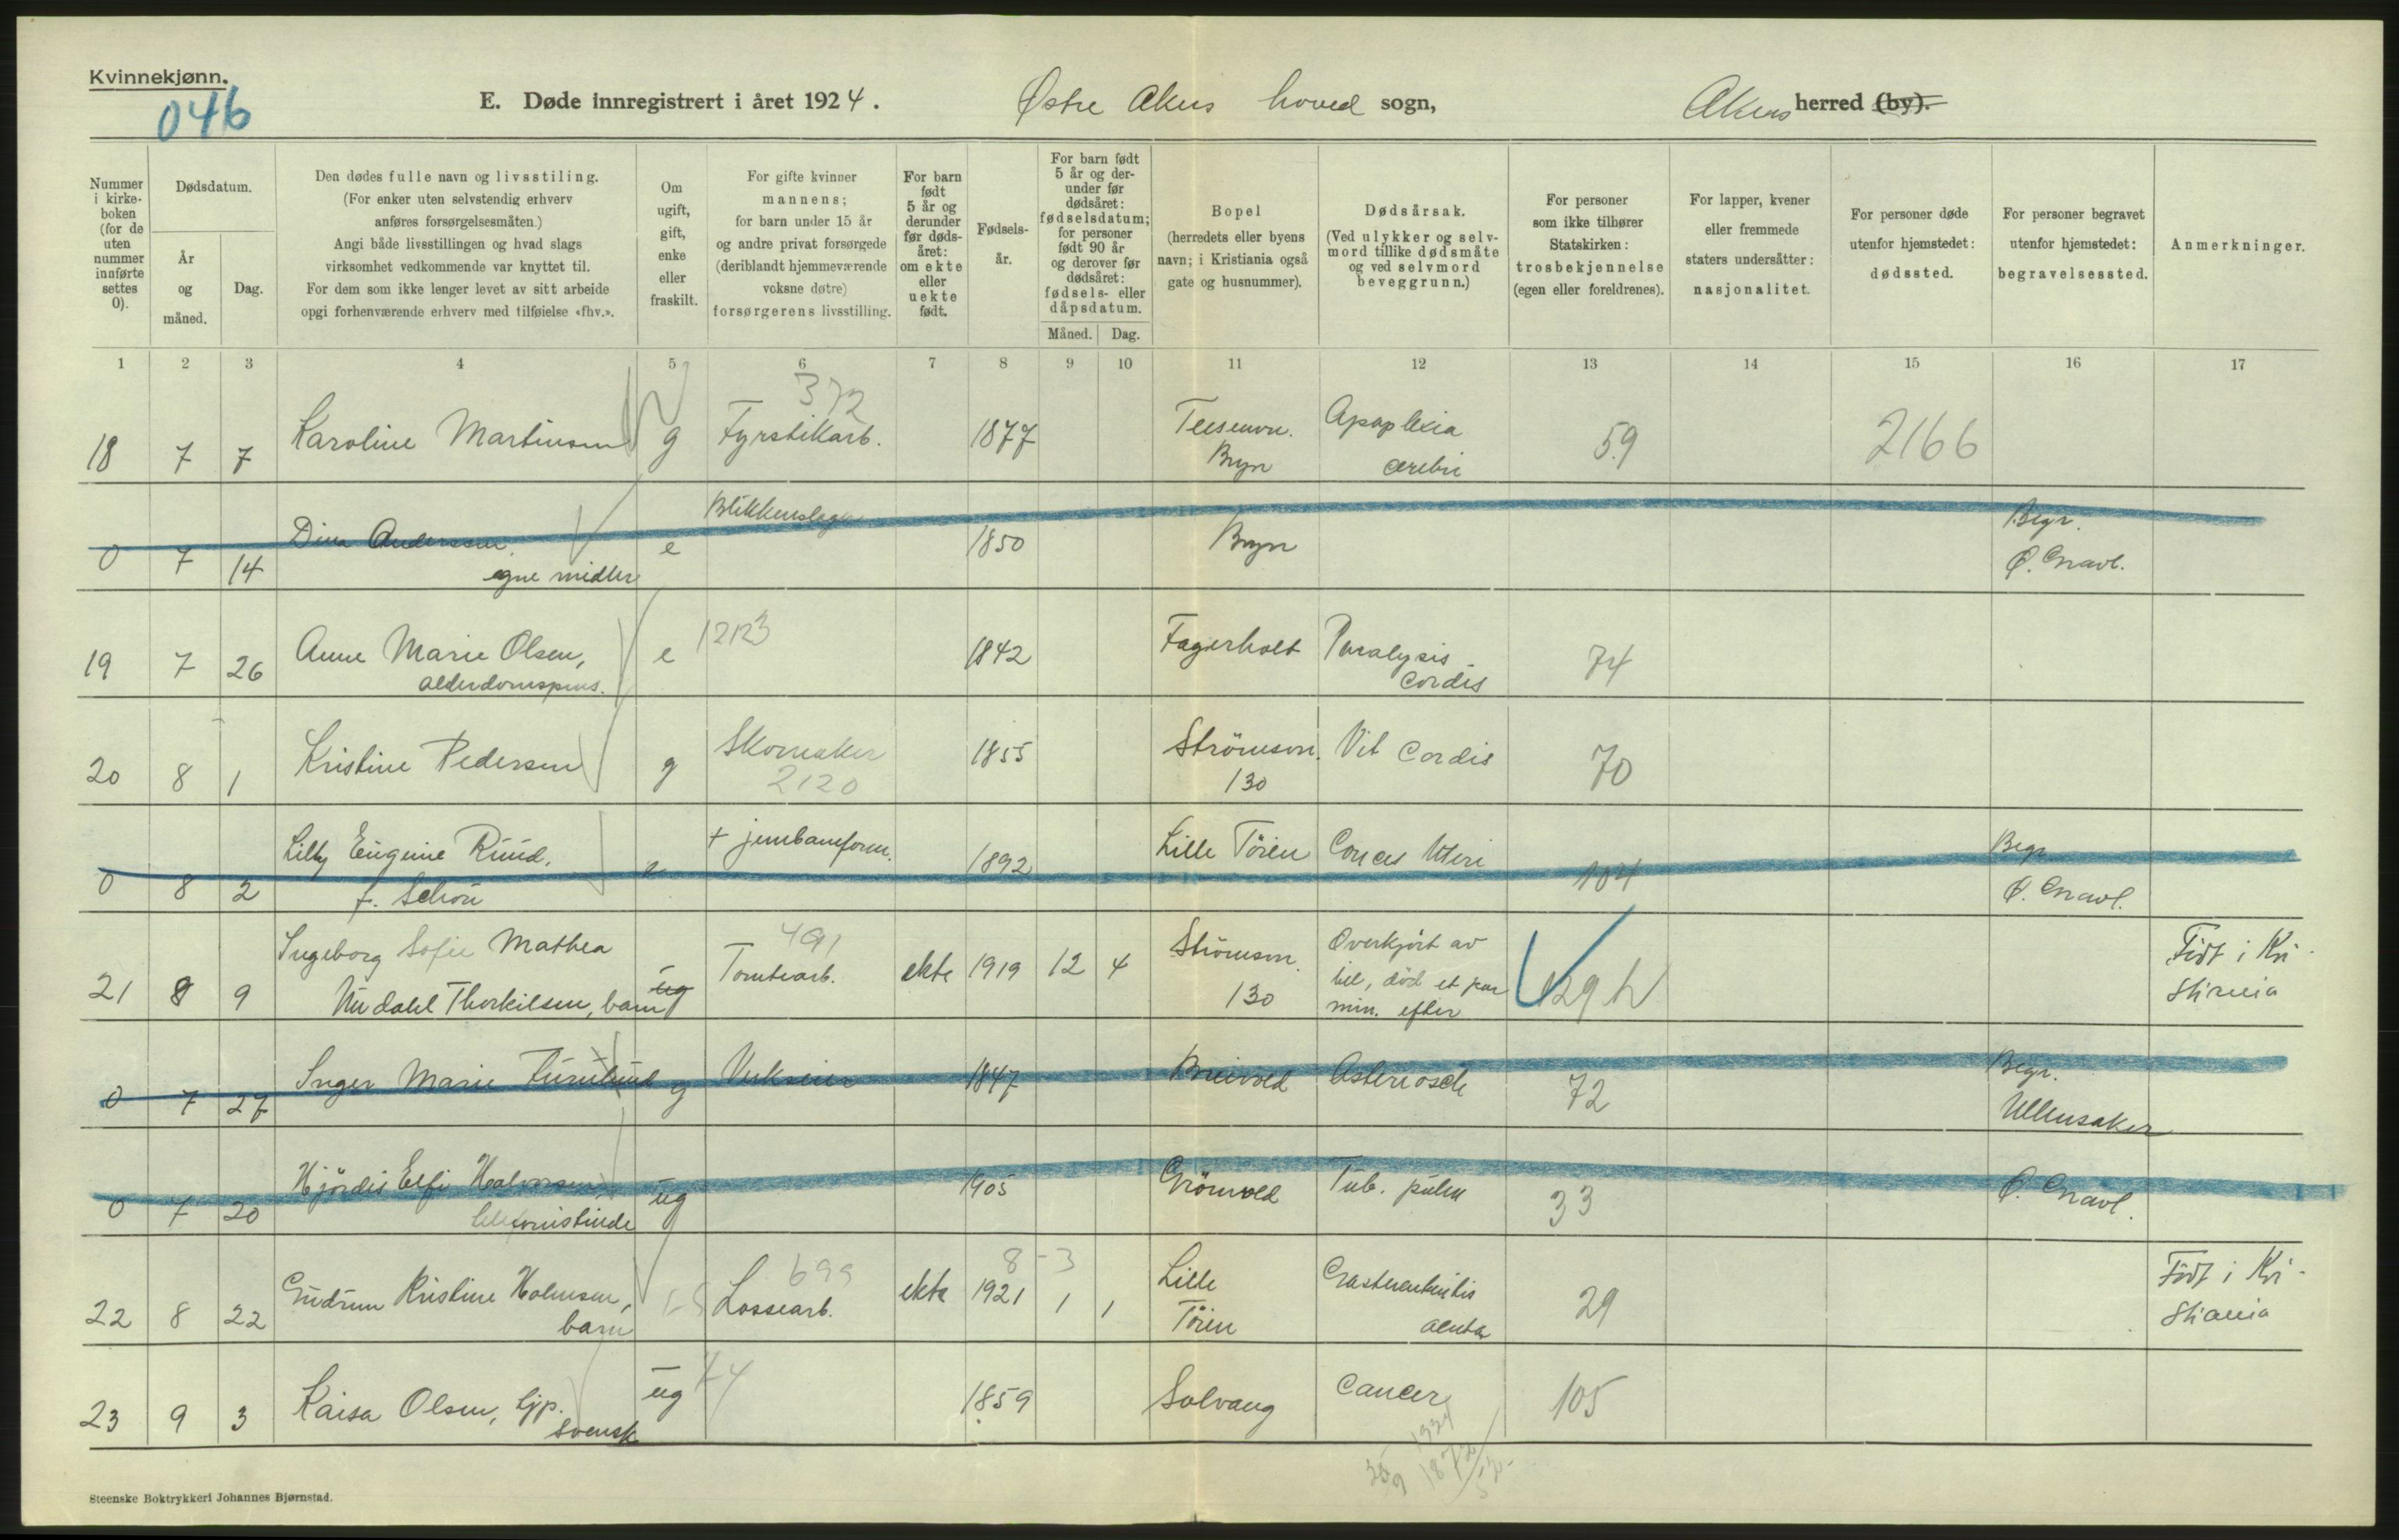 Kvinnekjønn.
046
E. Døde innregistrert i året 1924. Østre Akers hoved sogn, Akers herred (by).
Nummer i kirke-boken (for de uten nummer innførte settes 0).
Dødsdatum.
År og måned.
Dag.
Den dødes fulle navn og livsstiling.
(For enker uten selvstendig erhverv
anføres forsørgelsesmåten.)
Angi både livsstillingen og hvad slags
virksomhet vedkommende var knyttet til.
For dem som ikke lenger levet av sitt arbeide
opgi forhenværende erhverv med tilføielse «fhv.».
Om ugift, gift, enke eller fraskilt.
For gifte kvinner
mannens;
for barn under 15 år
og andre privat forsørgede
(deriblandt hjemmeværende
voksne døtre)
forsørgerens livsstilling.
For barn født 5 år og derunder før døds-året: om ekte eller uekte født.
Fødsels-år.
For barn født 5 år og der-under før dødsåret: fødselsdatum; for personer født 90 år og derover før dødsåret: fødsels- eller dåpsdatum.
Måned. Dag.
Bopel
(herredets eller byens
navn; i Kristiania også
gate og husnummer).
Dødsårsak.
(Ved ulykker og selv-
mord tillike dødsmåte
og ved selvmord
beveggrunn.)
For personer
som ikke tilhører
Statskirken:
trosbekjennelse
(egen eller foreldrenes).
For lapper, kvener
eller fremmede
staters undersåtter:
nasjonalitet.
For personer døde
utenfor hjemstedet:
dødssted.
For personer begravet
utenfor hjemstedet:
begravelsessted.
Anmerkninger.
1 2 3 4 5 6 7 8 9 10 11 12 13 14 15 16 17
372
18 7 7 Karoline Martinsen g Fyrstikarb. 1877 Teisenvn. Bryn Apoplexia cerebri 59 2166
0 7 14 Dina Andersen, egne midler e Blikkenslager 1850 Bryn Begr. Ø. Gravl.
19 7 26 Anne Marie Olsen, alderdomspens. e 12123 1842 Fagerholt Paralysis Cordis 74
20 8 1 Kristine Pedersen g Skomaker 2120 1855 Strömsvn. 130 Vit Cordis 70
0 8 2 Lilly Eugenie Ruud, f. Schou e + jernbaneform. 1892 Lille Töien Cancer Uteri 104 Begr. Ø. Gravl.
21 8 9 Ingeborg Sofie Mathea Nudahl Thorkilsen, barn ug 491 Tomtearb. ekte 1919 12 4 Strömsvn. 130 Overkjört av bil, död et par min. efter 129 h Födt i Kristiania
0 7 27 Inger Marie Furulund g Verkseier 1847 Breivold Arteriosch 72 Begr. Ullensaker
0 7 20 Hjördis Elfi Halvorsen, telefonistinde ug 1905 Grönvold Tub. pulm 33 Ø. Gravl.
22 8 22 Gudrun Kristine Holmsen, barn 699 Lossearb. ekte 8-3 1921 1 1 Lille Töien Gasterenteritis acuta 29 Födt i Kristiania
23 9 3 Kaisa Olsen, hjp. svensk ug 44 1859 Solvang Cancer 105
Steenske Boktrykkeri Johannes Bjørnstad.